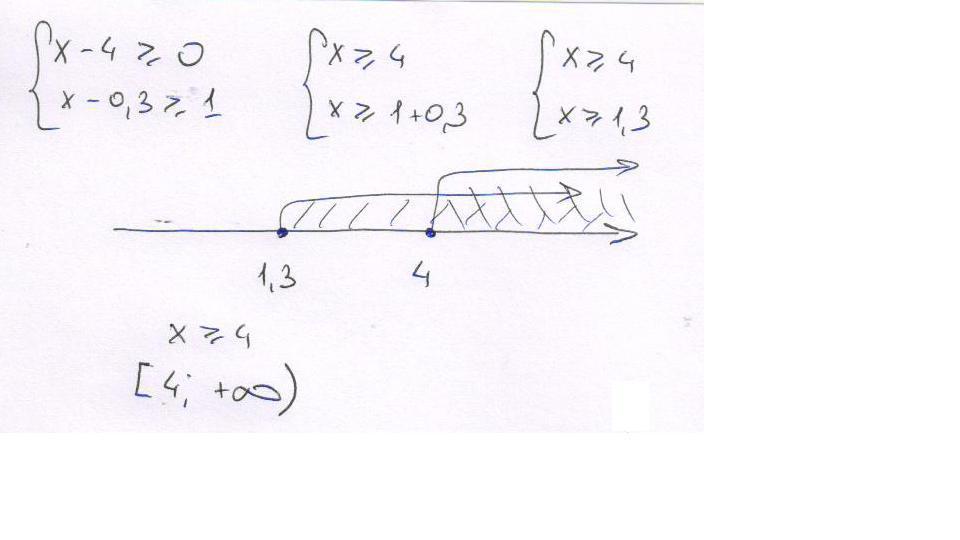 x - 4 ≥ 0
x - 0,3 ≥ 1
x ≥ 4
x ≥ 1+0,3
x ≥ 4
x ≥ 1,3
1,3 4
x ≥ 4
[4; +∞)